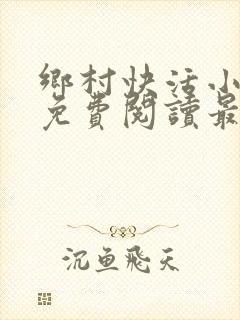 鄉村快活小
免費閱讀最
沉鱼飛天